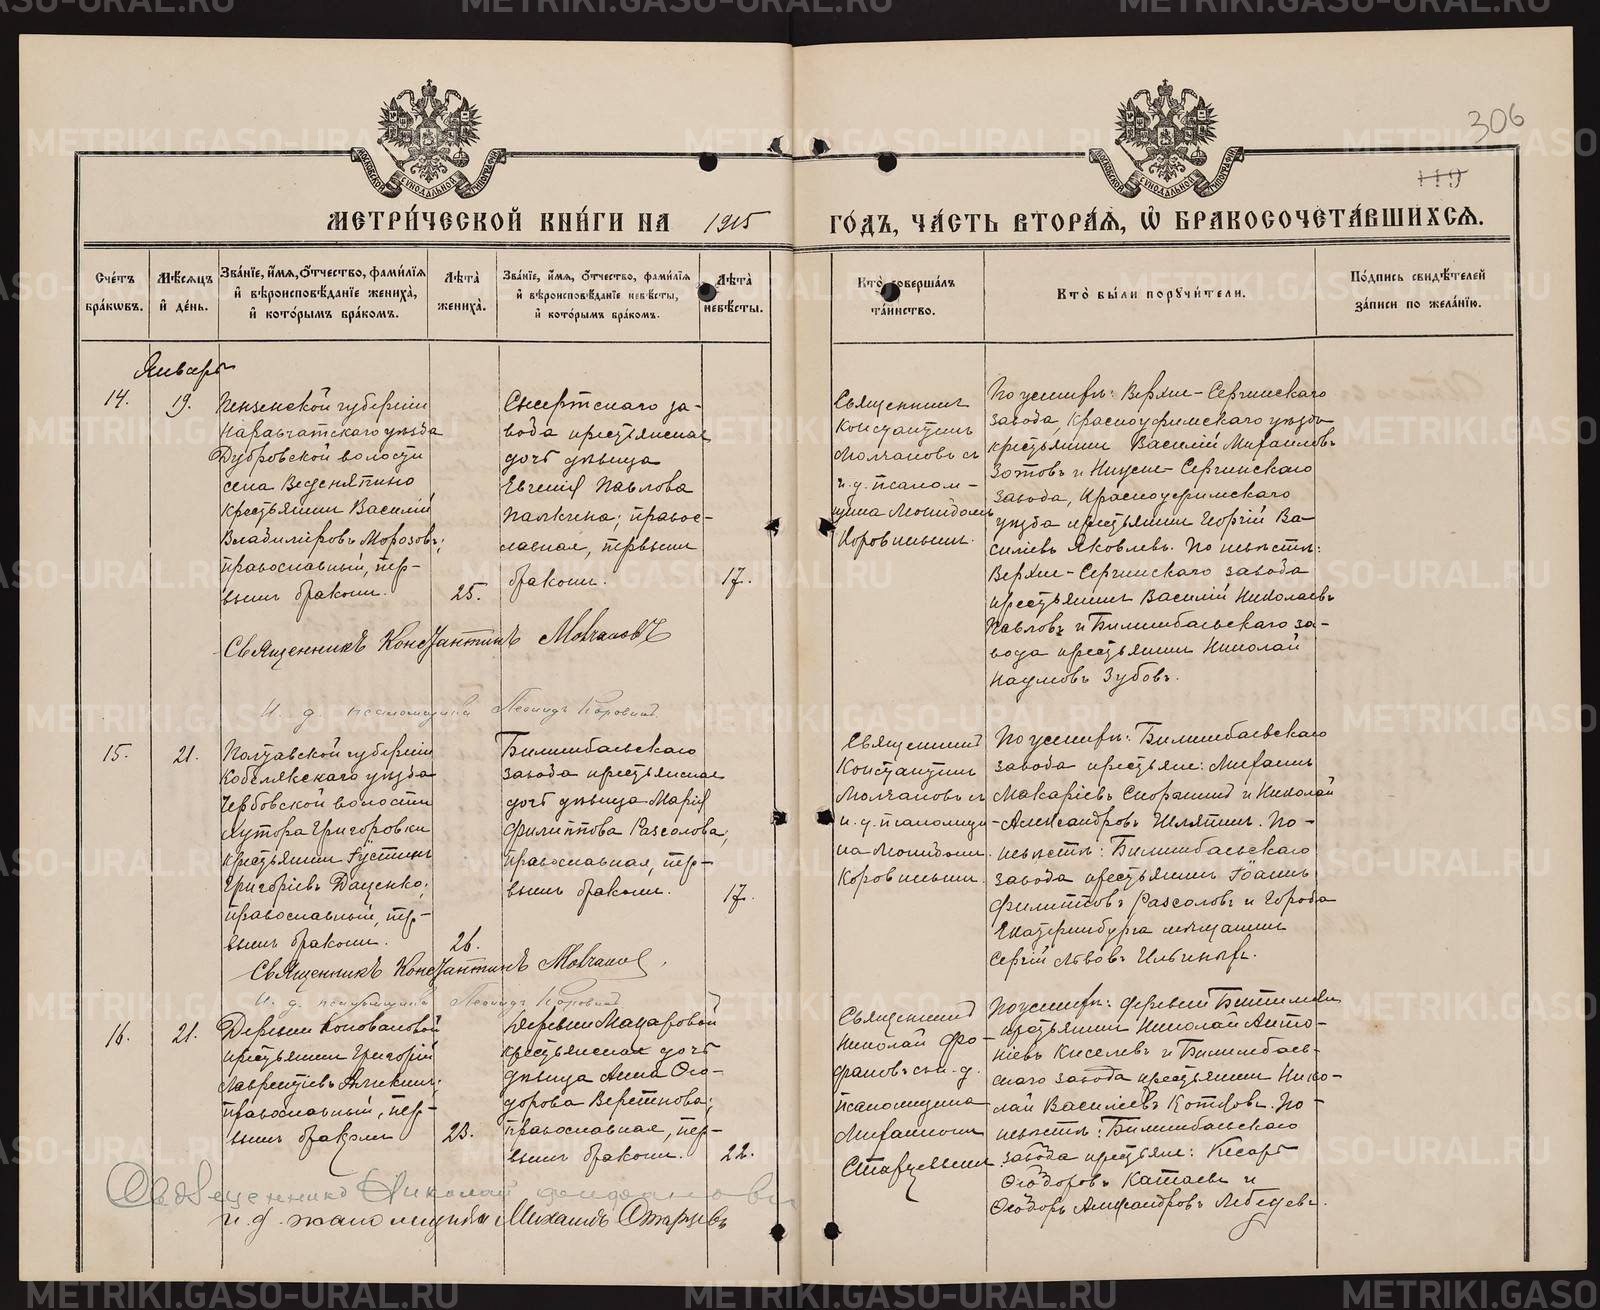 306
119
МЕТРИ́ЧЕСКОЙ КНИ́ГИ НА 1915 ГО́ДЪ, ЧА́СТЬ ВТОРА́Я, Ѡ҆ БРАКОСОЧЕТА́ВШИХСЯ.
Сче́тъ бра́кѡвъ.
Мѣ́сяцъ и҆ де́нь.
Зва́нїе, и҆́мя, ѻ҆́тчество, фами́лїя и҆ вѣроисповѣ́данїе жениха̀, и҆ кото́рымъ бра́комъ.
Лѣта̀ жениха̀.
Зва́нїе, и҆́мя, ѻ҆́тчество, фами́лїя и҆ вѣроисповѣ́данїе невѣ́сты, и҆ кото́рымъ бра́комъ.
Лѣта̀ невѣ́сты.
Кто̀ соверша́лъ та́инство.
Кто̀ бы́ли порꙋчи́тели.
По́дпись свидѣ́телей за́писи по жела́нїю.
Январь
14.
19.
Пензенской губернии
Наравчатскаго уѣзда
Дубровской волости
села Веденяпино
крестьянинъ Василій
Владиміровъ Морозовъ;
православный, пер-
вымъ бракомъ.
25.
Сысертскаго за-
вода крестьянская
дочь дѣвица
Евгенія Павлова
Палкина; правос-
лавная, первымъ
бракомъ.
17.
Священникъ
Константинъ
Молчановъ съ
и. д. псалом-
щика Леонидомъ
Коровинымъ.
По женихѣ: Верхне-Сергинскаго
завода, Красноуфимскаго уѣзда
крестьянинъ Василій Михаиловъ
Зотовъ и Нижне-Сергинскаго
завода, Красноуфимскаго
уѣзда крестьянинъ Георгій Ва-
силіевъ Яковлевъ. По невѣстѣ:
Верхне-Сергинскаго завода
крестьянинъ Василій Николаевъ
Павловъ и Билимбаевскаго за-
вода крестьянинъ Николай
Наумовъ Зубовъ.
Священникъ Константинъ Молчановъ
И. д. псаломщика Леонидъ Коровинъ
15.
21.
Полтавской губерніи
Кобелякскаго уѣзда
волости
хутора Григоровки
крестьянинъ Іустинъ
Григоріевъ Даценко;
православный, пер-
вымъ бракомъ.
26.
Билимбаевскаго
завода крестьянская
дочь дѣвица Марія
Филиппова Разсолова;
православная, пер-
вымъ бракомъ.
17.
Священникъ
Константинъ
Молчановъ съ
и. д. псаломщи-
ка Леонидомъ
Коровинымъ.
По женихѣ: Билимбаевскаго
завода крестьяне: Михаилъ
Макаріевъ и Николай
Александровъ Шляпинъ. По
невѣстѣ: Билимбаевскаго
завода крестьянинъ Іоаннъ
Филипповъ Разсоловъ и города
Екатеринбурга мѣщанинъ
Сергій Львовъ
Священникъ Константинъ Молчановъ.
И. д. псаломщика Леонидъ Коровинъ
16.
21.
Деревни Коноваловой
крестьянинъ Григорій
Лаврентіевъ
православный, пер-
вымъ бракомъ
23.
Деревни Макаровой
крестьянская дочь
дѣвица Анна Ѳео-
дорова
православная, пер-
вымъ бракомъ.
22.
Священникъ
Николай
съ и. д.
псаломщика
Михаиломъ
Старцевымъ
По женихѣ: деревни
крестьянинъ Николай Анто-
ніевъ Киселевъ и Билимбаев-
скаго завода крестьянинъ Нико-
лай Василіевъ Котовъ. По
невѣстѣ: Билимбаевскаго
завода крестьяне: Кесарь
Ѳеодоровъ Катаевъ и
Ѳеодоръ Александровъ Лебедевъ.
Священникъ Николай
и. д. псаломщика Михаилъ Старцевъ
METRIKI.GASO-URAL.RU